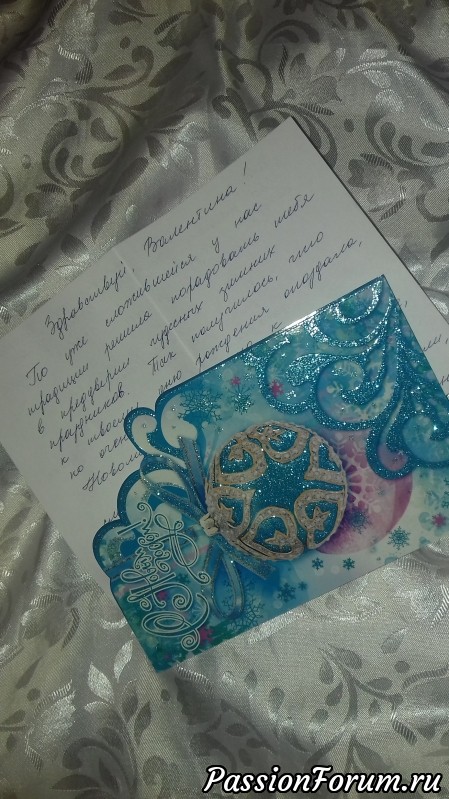 Здравствуй Валентина!
По уже сложившейся у нас
традиции решила порадовать тебя
в преддверии чудесных зимних
праздников. Так получилось, что
к твоему дню рождения опоздала,
но очень к
Новом
С Новым Годом!
PassionForum.ru